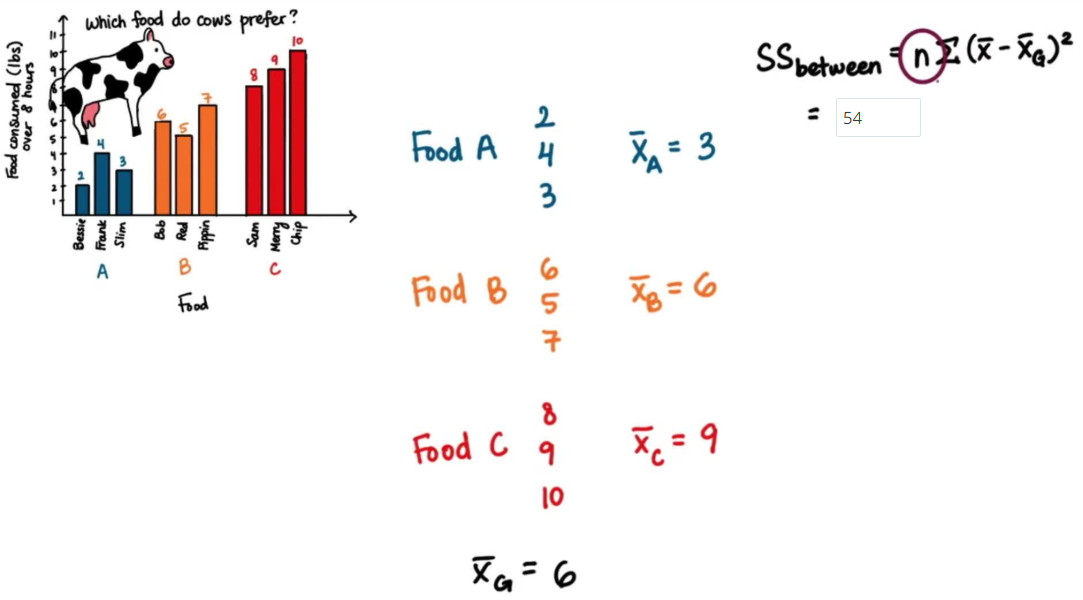 Which food do cows prefer?
Food consumed (lbs)
over 8 hours
11
10
9
8
6
5
4
3
2
1
2
4
3
6
5
7
8
9
10
Bessie
Frank
Slim
Bob
Red
Pippin
Sam
Merry
Chip
A
B
C
Food
Food A
2
4
3
x̄A = 3
Food B
6
5
7
x̄B = 6
Food C
8
9
10
x̄C = 9
x̄G = 6
SSbetween = n Σ (x̄ - x̄G)²
= 54